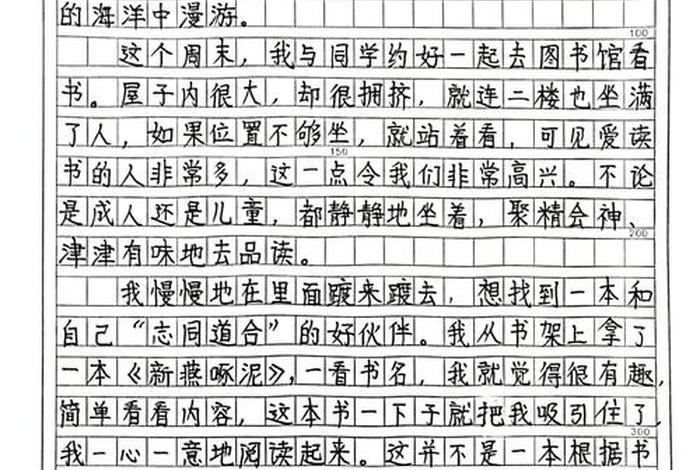 的海洋中漫游。
100
这个周末，我与同学约好一起去图书馆看
书。屋子内很大，却很拥挤，就连二楼也坐满
了人，如果位置不够坐，就站着看，可见爱读
150
书的人非常多，这一点令我们非常高兴。不论
是成人还是儿童，都静静地坐着，聚精会神、
200
津津有味地去品读。
我慢慢地在里面踱来踱去，想找到一本和
自己“志同道合”的好伙伴。我从书架上拿了
一本《新燕啄泥》，一看书名，我就觉得很有趣，
简单看看内容，这本书一下子就把我吸引住了，
300
我一心一意地阅读起来。这并不是一本根据书